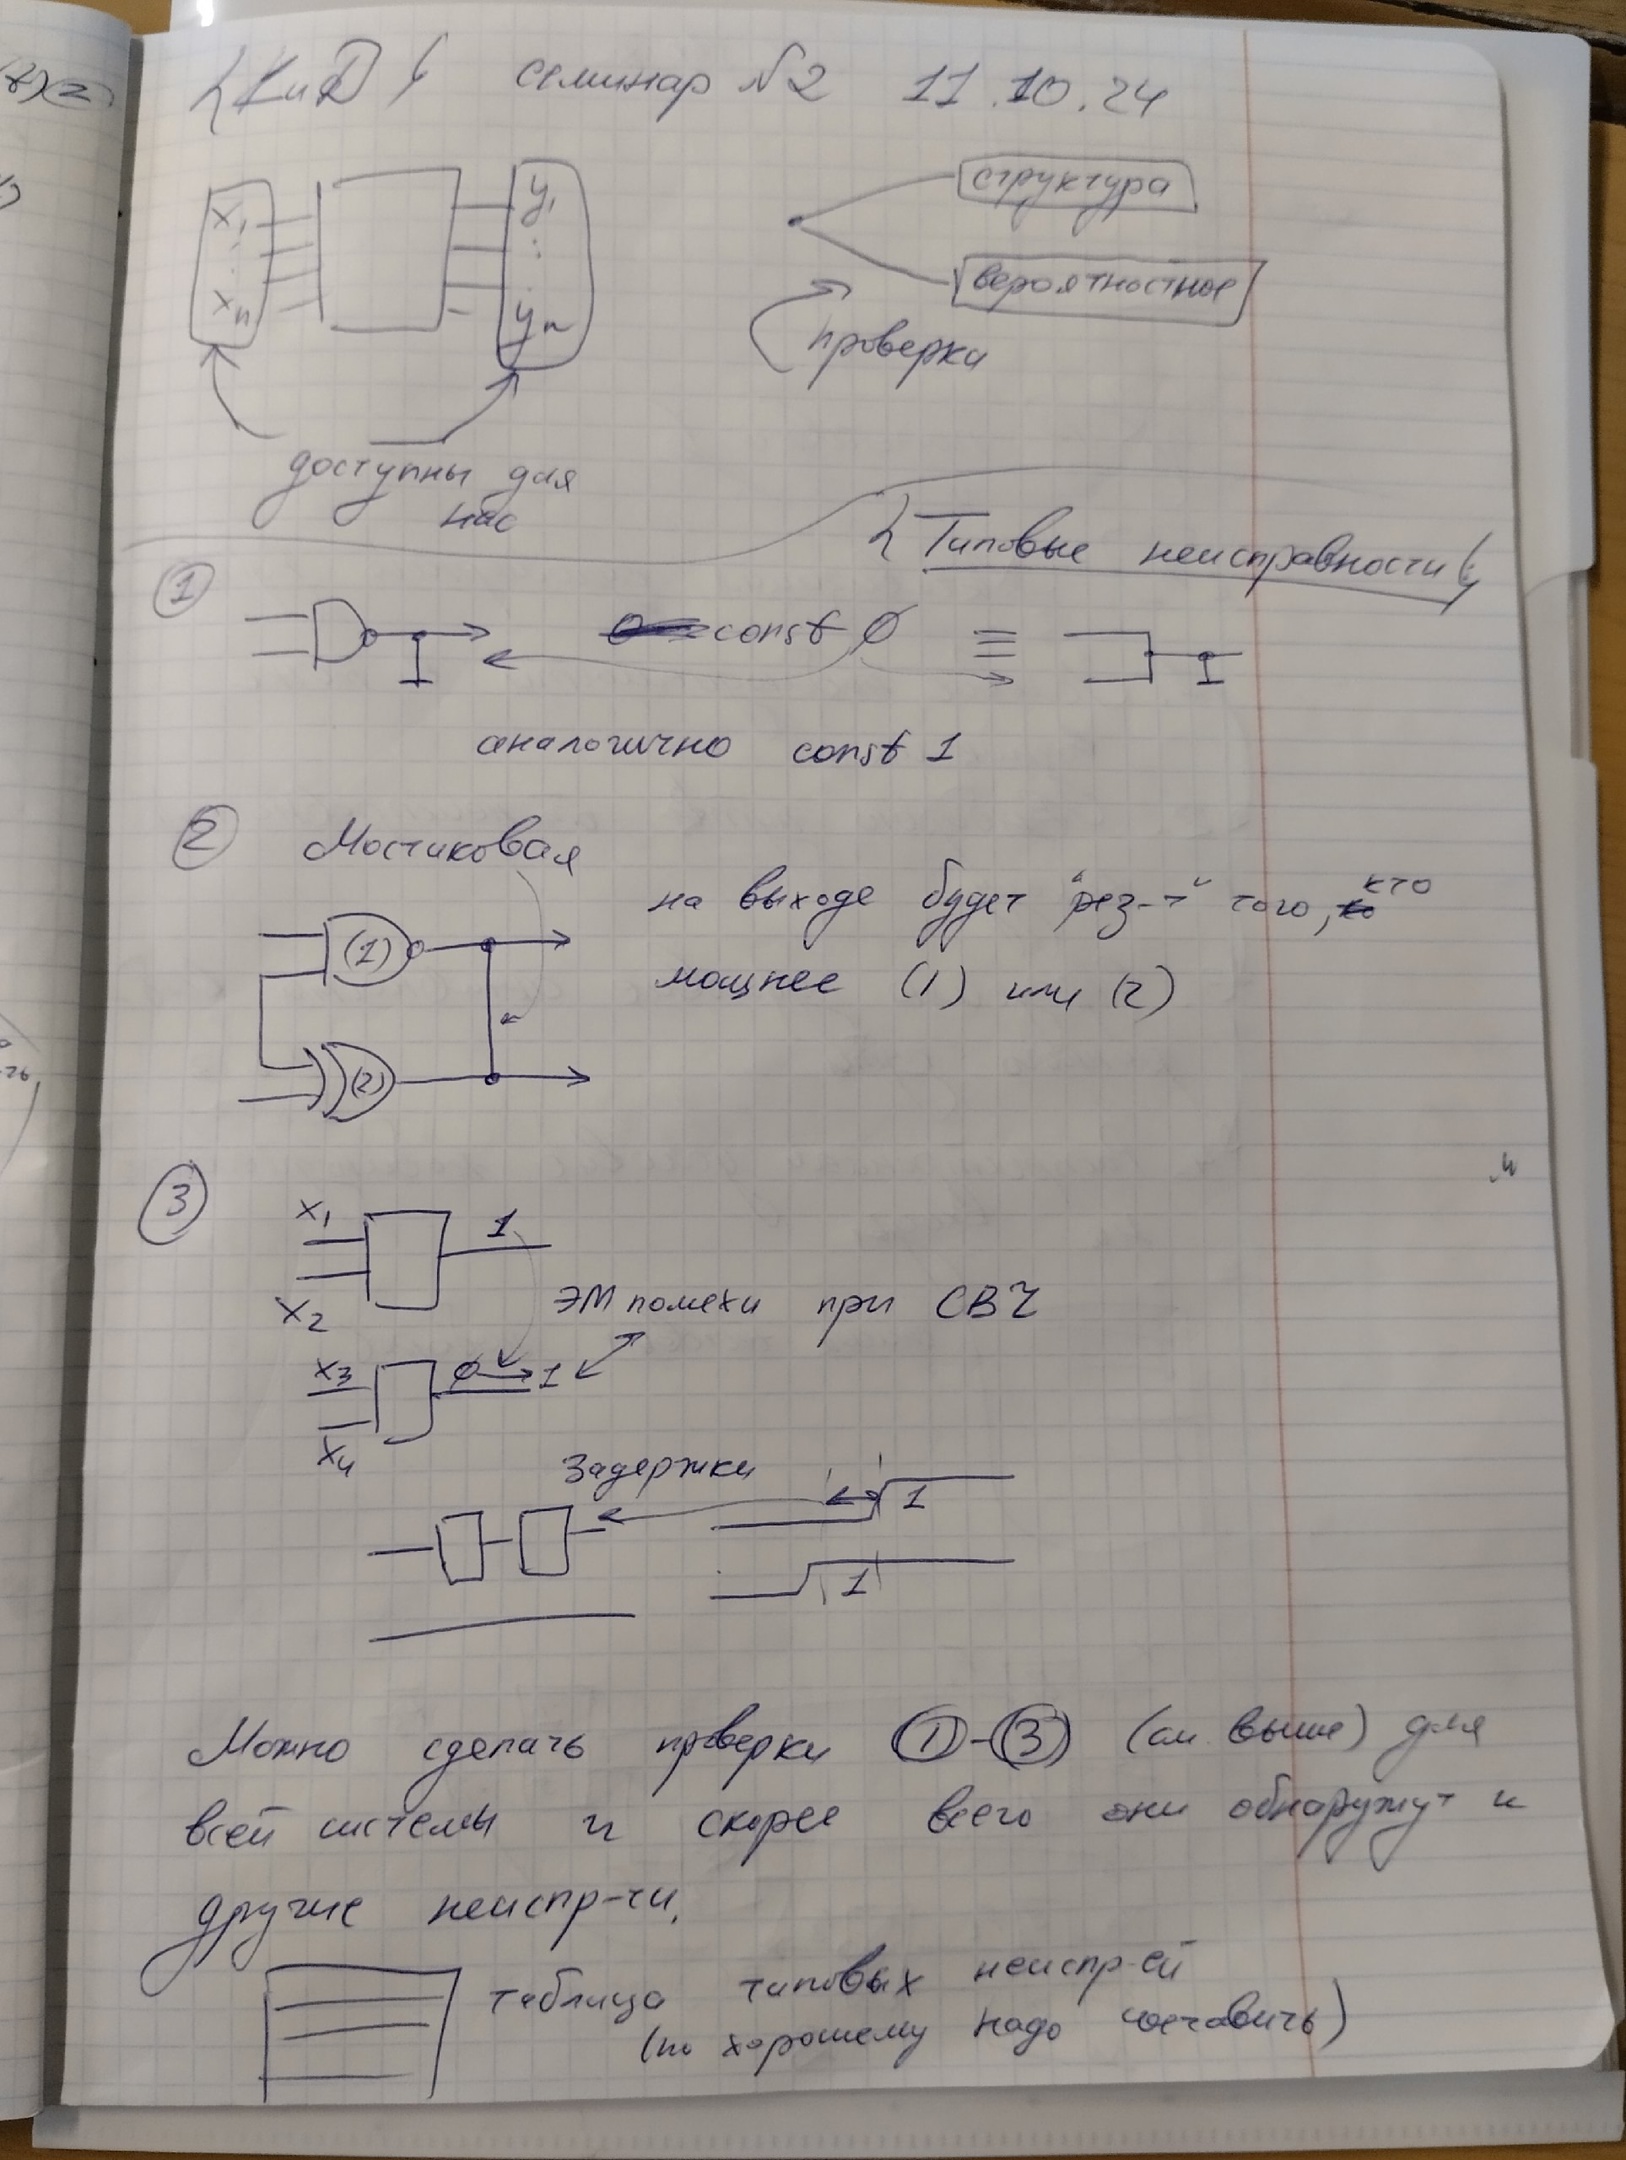 КиД семинар №2 11.10.24
x₁
⋮
xn
y₁
⋮
yn
структура
вероятностное
проверка
доступны для
нас
Типовые неисправности
1
const 0 ≡
аналогично const 1
2 Мостиковая
на выходе будет "рез-т" того, кто
мощнее (1) или (2)
(1)
(2)
3
x₁
x₂
1
ЭМ помехи при СВЧ
x₃
x₄
0 → 1
Задержки
1
1
Можно сделать проверки ①-③ (см. выше) для
всей системы и скорее всего они обнаружут и
другие неиспр-ти.
таблица типовых неиспр-ей
(по хорошему надо составить)